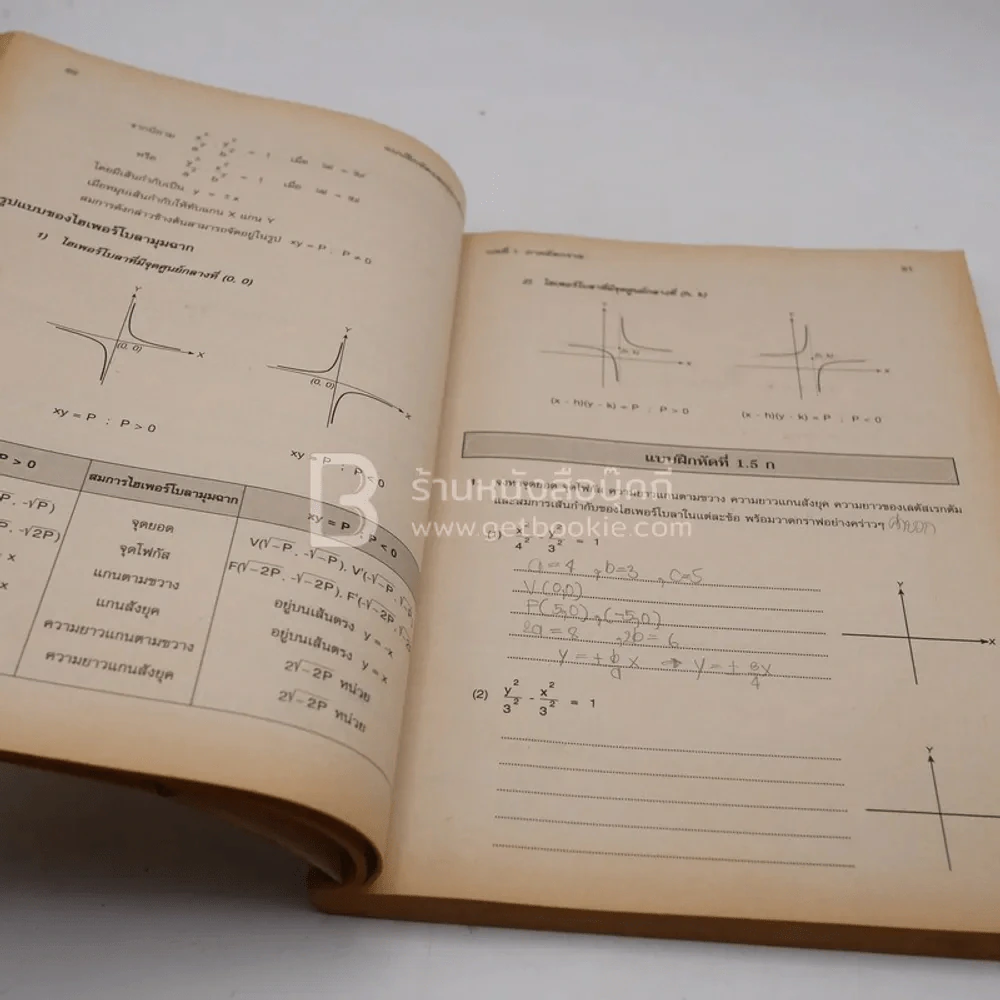 90
จากนิยาม x²/a² - y²/b² = 1 เมื่อ
หรือ y²/a² - x²/b² = 1 เมื่อ
โดยมีเส้นกำกับเป็น y = ±x
เมื่อหมุนเส้นกำกับให้ทับแกน X แกน Y
สมการดังกล่าวข้างต้นสามารถจัดอยู่ในรูป xy = P ; P ≠ 0
รูปแบบของไฮเพอร์โบลามุมฉาก
1) ไฮเพอร์โบลาที่มีจุดศูนย์กลางที่ (0, 0)
Y
(0, 0)
X
Y
(0, 0)
X
xy = P ; P > 0
xy = P ; P < 0
P > 0
สมการไฮเพอร์โบลามุมฉาก
xy = P ; P < 0
P, -√P)
จุดยอด
V(√-P, -√-P), V'(-√-P, √-P
P, -√2P)
จุดโฟกัส
F(√-2P, -√-2P), F'(-√-2P, √
= x
แกนตามขวาง
อยู่บนเส้นตรง y = -x
x
แกนสังยุค
อยู่บนเส้นตรง y = x
ความยาวแกนตามขวาง
2√-2P หน่วย
ความยาวแกนสังยุค
2√-2P หน่วย
91
2) ไฮเพอร์โบลาที่มีจุดศูนย์กลางที่ (h, k)
Y
(h, k)
X
Y
(h, k)
X
(x - h)(y - k) = P ; P > 0
(x - h)(y - k) = P ; P < 0
แบบฝึกหัดที่ 1.5 ก
1. จงหาจุดยอด จุดโฟกัส ความยาวแกนตามขวาง ความยาวแกนสังยุค ความยาวของเลตัสเรกตัม
และสมการเส้นกำกับของไฮเพอร์โบลาในแต่ละข้อ พร้อมวาดกราฟอย่างคร่าวๆ
(1) x²/4² - y²/3² = 1
a=4 , b=3 , c=5
V(0,0)
F(5,0), (-5,0)
2a = 8 , 2b = 6
y = ± b/a x → y = ± 3x/4
Y
X
(2) y²/3² - x²/3² = 1
Y
B
ร้านหนังสือบุ๊คกี้
www.getbookie.com